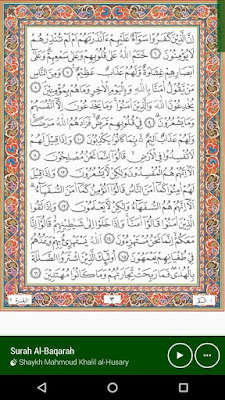 إِنَّ الَّذِينَ كَفَرُوا سَوَاءٌ عَلَيْهِمْ ءَأَنذَرْتَهُمْ أَمْ لَمْ تُنذِرْهُمْ
لَا يُؤْمِنُونَ ٦ خَتَمَ اللَّهُ عَلَىٰ قُلُوبِهِمْ وَعَلَىٰ سَمْعِهِمْ وَعَلَىٰ
أَبْصَٰرِهِمْ غِشَٰوَةٌ وَلَهُمْ عَذَابٌ عَظِيمٌ ٧ وَمِنَ النَّاسِ
مَن يَقُولُ ءَامَنَّا بِاللَّهِ وَبِالْيَوْمِ الْءَاخِرِ وَمَا هُم بِمُؤْمِنِينَ ٨
يُخَٰدِعُونَ اللَّهَ وَالَّذِينَ ءَامَنُوا وَمَا يَخْدَعُونَ إِلَّا أَنفُسَهُمْ
وَمَا يَشْعُرُونَ ٩ فِي قُلُوبِهِم مَّرَضٌ فَزَادَهُمُ اللَّهُ مَرَضًا
وَلَهُمْ عَذَابٌ أَلِيمٌ بِمَا كَانُوا يَكْذِبُونَ ١٠ وَإِذَا قِيلَ لَهُمْ
لَا تُفْسِدُوا فِي الْأَرْضِ قَالُوا إِنَّمَا نَحْنُ مُصْلِحُونَ ١١
أَلَا إِنَّهُمْ هُمُ الْمُفْسِدُونَ وَلَٰكِن لَّا يَشْعُرُونَ ١٢ وَإِذَا قِيلَ
لَهُمْ ءَامِنُوا كَمَا ءَامَنَ النَّاسُ قَالُوا أَنُؤْمِنُ كَمَا ءَامَنَ السُّفَهَاءُ
أَلَا إِنَّهُمْ هُمُ السُّفَهَاءُ وَلَٰكِن لَّا يَعْلَمُونَ ١٣ وَإِذَا لَقُوا
الَّذِينَ ءَامَنُوا قَالُوا ءَامَنَّا وَإِذَا خَلَوْا إِلَىٰ شَيَٰطِينِهِمْ قَالُوا إِنَّا
مَعَكُمْ إِنَّمَا نَحْنُ مُسْتَهْزِءُونَ ١٤ اللَّهُ يَسْتَهْزِئُ بِهِمْ وَيَمُدُّهُمْ
فِي طُغْيَٰنِهِمْ يَعْمَهُونَ ١٥ أُولَٰئِكَ الَّذِينَ اشْتَرَوُا الضَّلَٰلَةَ
بِالْهُدَىٰ فَمَا رَبِحَت تِّجَٰرَتُهُمْ وَمَا كَانُوا مُهْتَدِينَ ١٦
Surah Al-Baqarah
Shaykh Mahmoud Khalil al-Husary